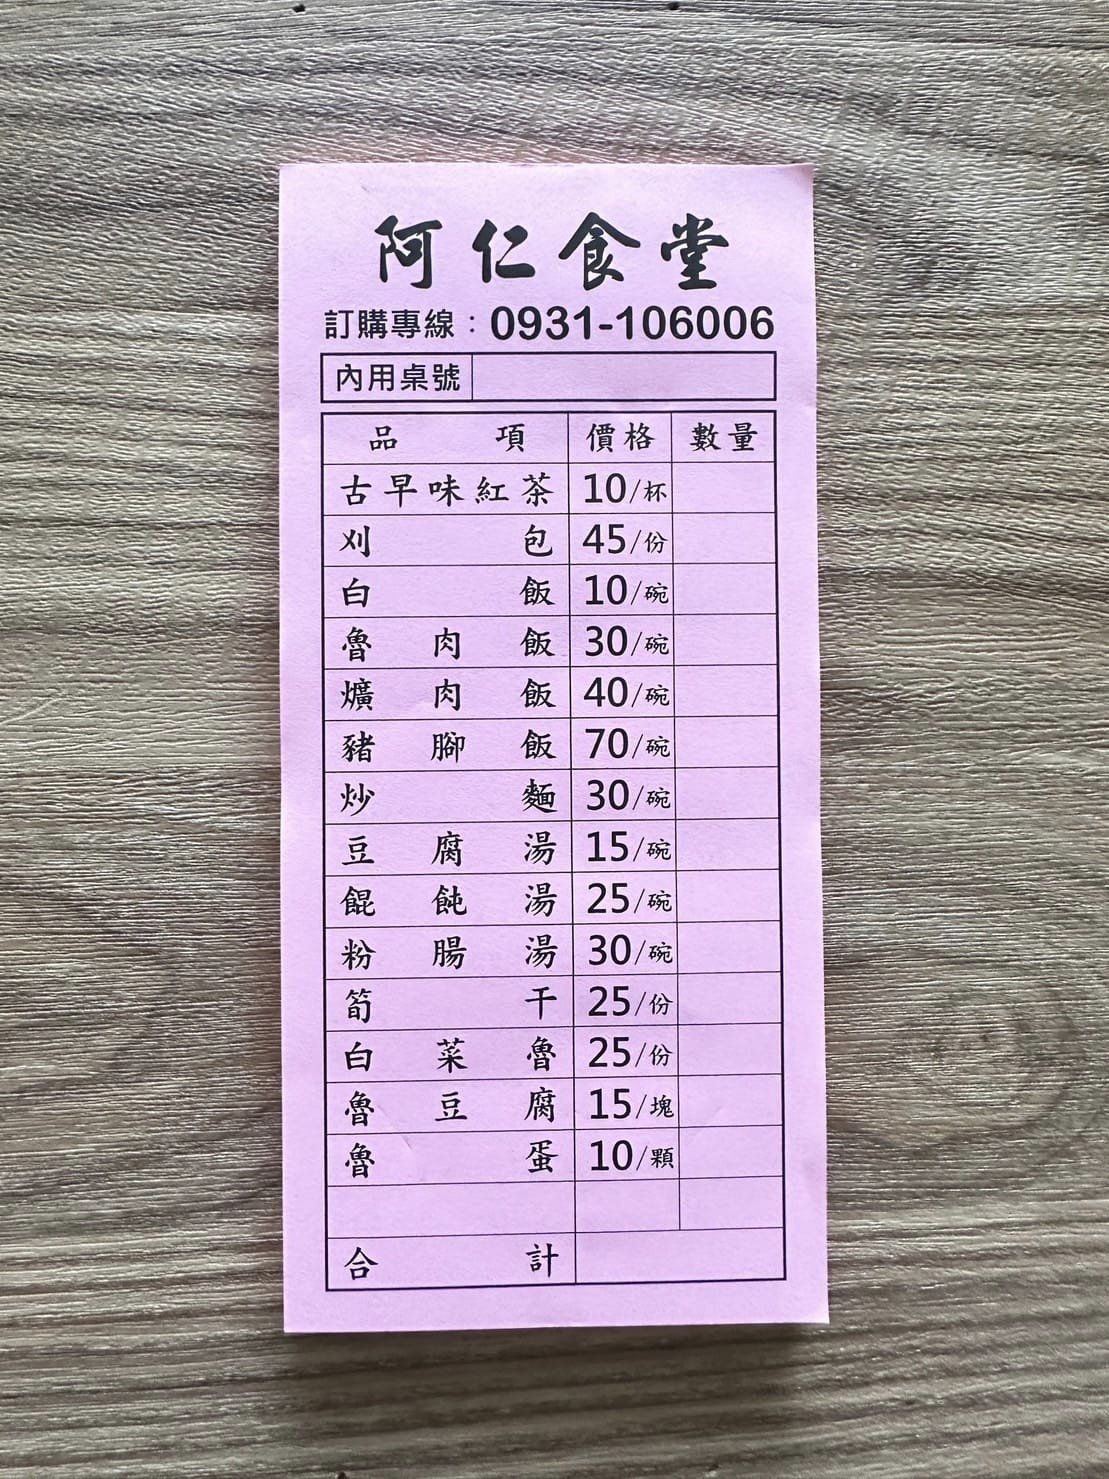 阿仁食堂
訂購專線：0931-106006
內用桌號
品項 價格 數量
古早味紅茶 10/杯
刈包 45/份
白飯 10/碗
魯肉飯 30/碗
爌肉飯 40/碗
豬腳飯 70/碗
炒麵 30/碗
豆腐湯 15/碗
餛飩湯 25/碗
粉腸湯 30/碗
筍干 25/份
白菜魯 25/份
魯豆腐 15/塊
魯蛋 10/顆
合計